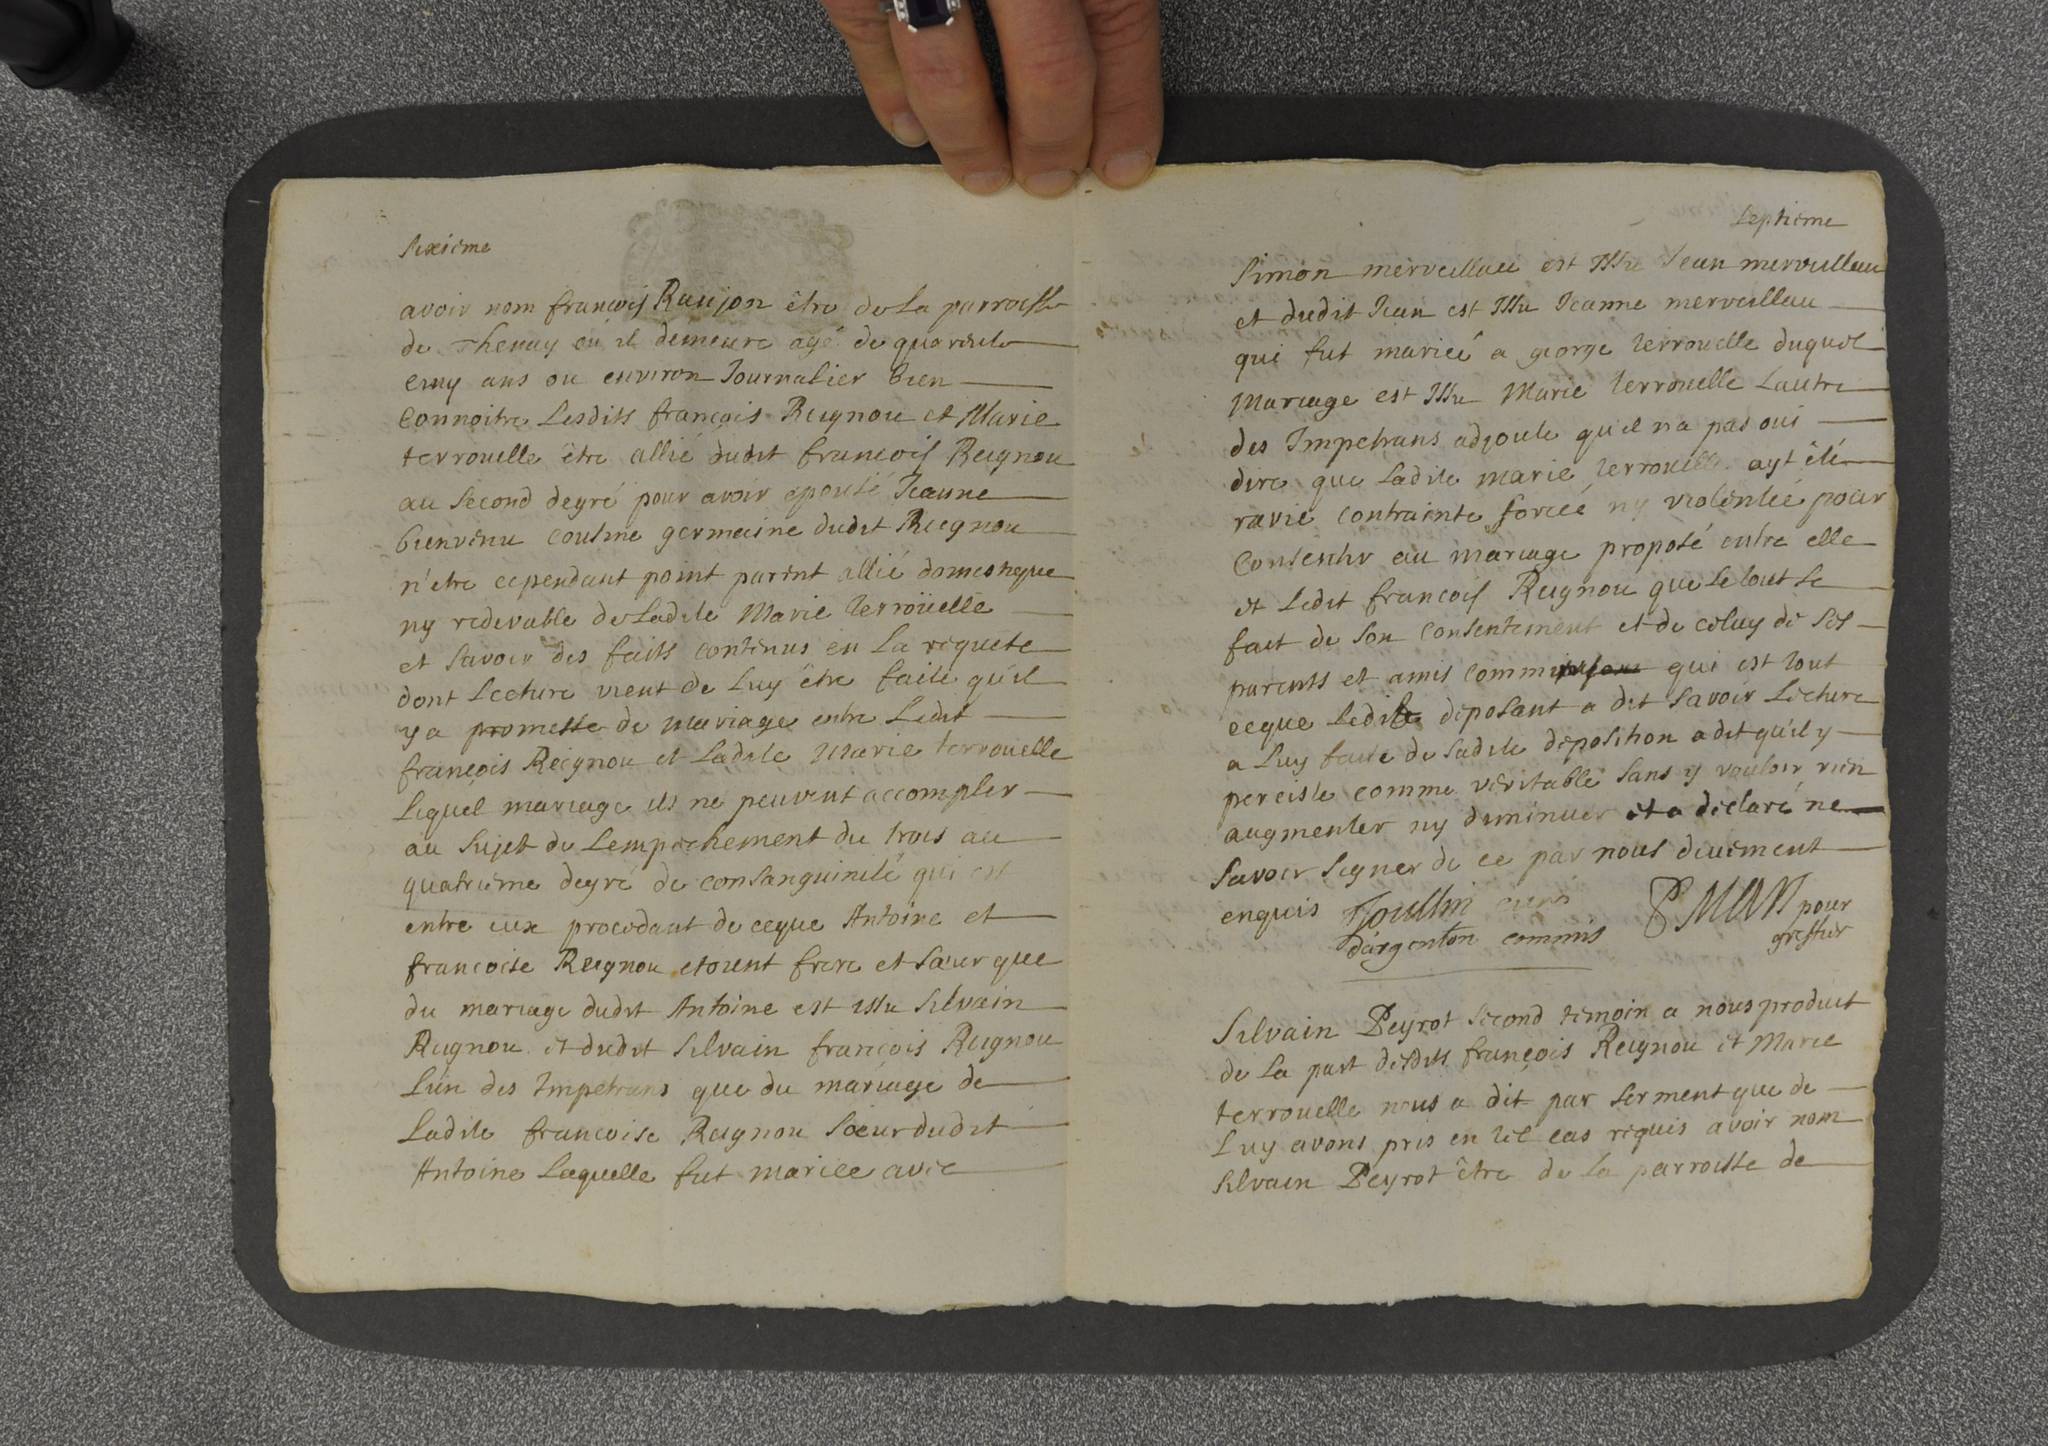 sixiéme
avoir nom françois Raujon être de la parroisse
de Thenay où il demeure agé de quarente
cinq ans ou environ Journalier bien
connoitre lesdits françois Reignou et Marie
terrouelle être allié dudit françois Reignou
au second degré pour avoir epousé Jeanne
bienvenu cousine germaine dudit Reignou
n'etre cependant point parent allié domestique
ny redevable de ladite Marie terroüelle
et savoir des faits contenus en la requete
dont lecture vient de luy être faite qu'il
y a promesse de mariage entre ledit
françois Reignou et ladite Marie terrouelle
lequel mariage ils ne peuvent accomplir
au sujet de lempechement du trois au
quatrieme degré de consanguinité qui est
entre eux procedant de ceque Antoine et
francoise Reignou etoient frere et sœur que
du mariage dudit Antoine est issu silvain
Reignou et dudit silvain françois Reignou
lun des Impetrans que du mariage de
ladite francoise Reignou sœur dudit
Antoine laquelle fut mariee avec
septieme
simon merveillau est Issu Jean merveillau
et dudit Jean est Issu Jeanne merveillau
qui fut marieé a george terrouelle duquel
mariage est Issu Marie terrouelle lautre
des Impetrans adjoute qu'il n'a pas oui
dire que ladite marie terrouelle ayt été
ravie contrainte forcéé ny violentéé pour
consentir au mariage proposé entre elle
et ledit françois Reignou que le tout se
fait de son consentement et de celuy de ses
parents et amis commi qui est tout
ceque ledit deposant a dit savoir lecture
a luy faite de sadite deposition a dit qu'il y
perciste comme veritable sans y vouloir rien
augmenter ny diminuer et a declaré ne
savoir signer de ce par nous duement
enquis Joullin curé PMan pour
dargenton commis greffier
silvain Peyrot second temoin a nous produit
de la part desdits françois Reignou et Marie
terrouelle nous a dit par serment que de
luy avons pris en tel cas requis avoir nom
silvain Peyrot être de la parroisse de